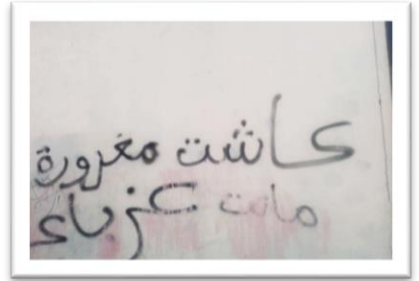 عاشت مغرورة
ماتت عزباء